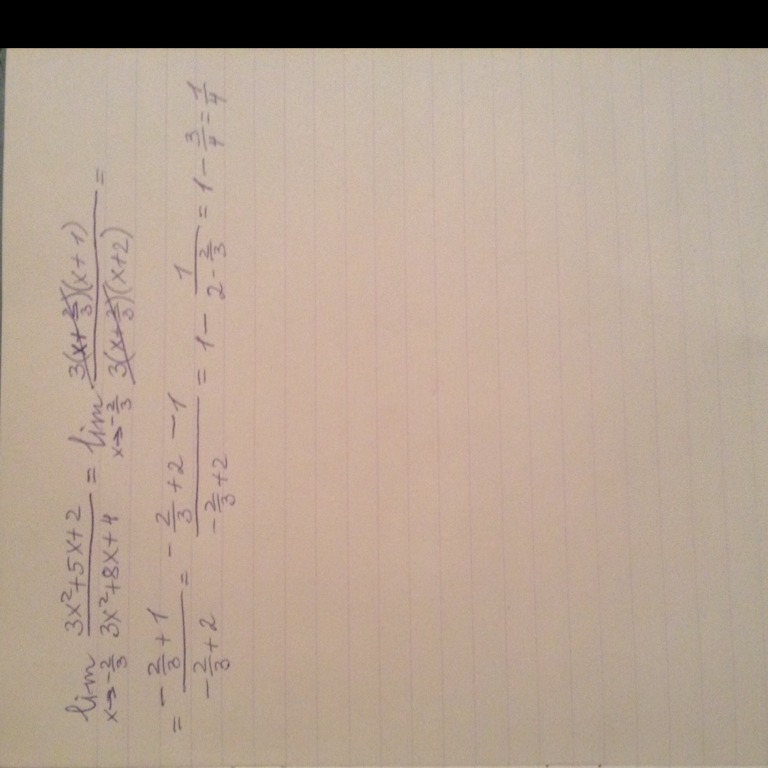 lim x→-2/3 (3x²+5x+2)/(3x²+8x+4) = lim x→-2/3 (3(x+2/3)(x+1))/(3(x+2/3)(x+2)) =
= (-2/3+1)/(-2/3+2) = (-2/3+2-1)/(-2/3+2) = 1 - 1/(2-2/3) = 1 - 3/4 = 1/4